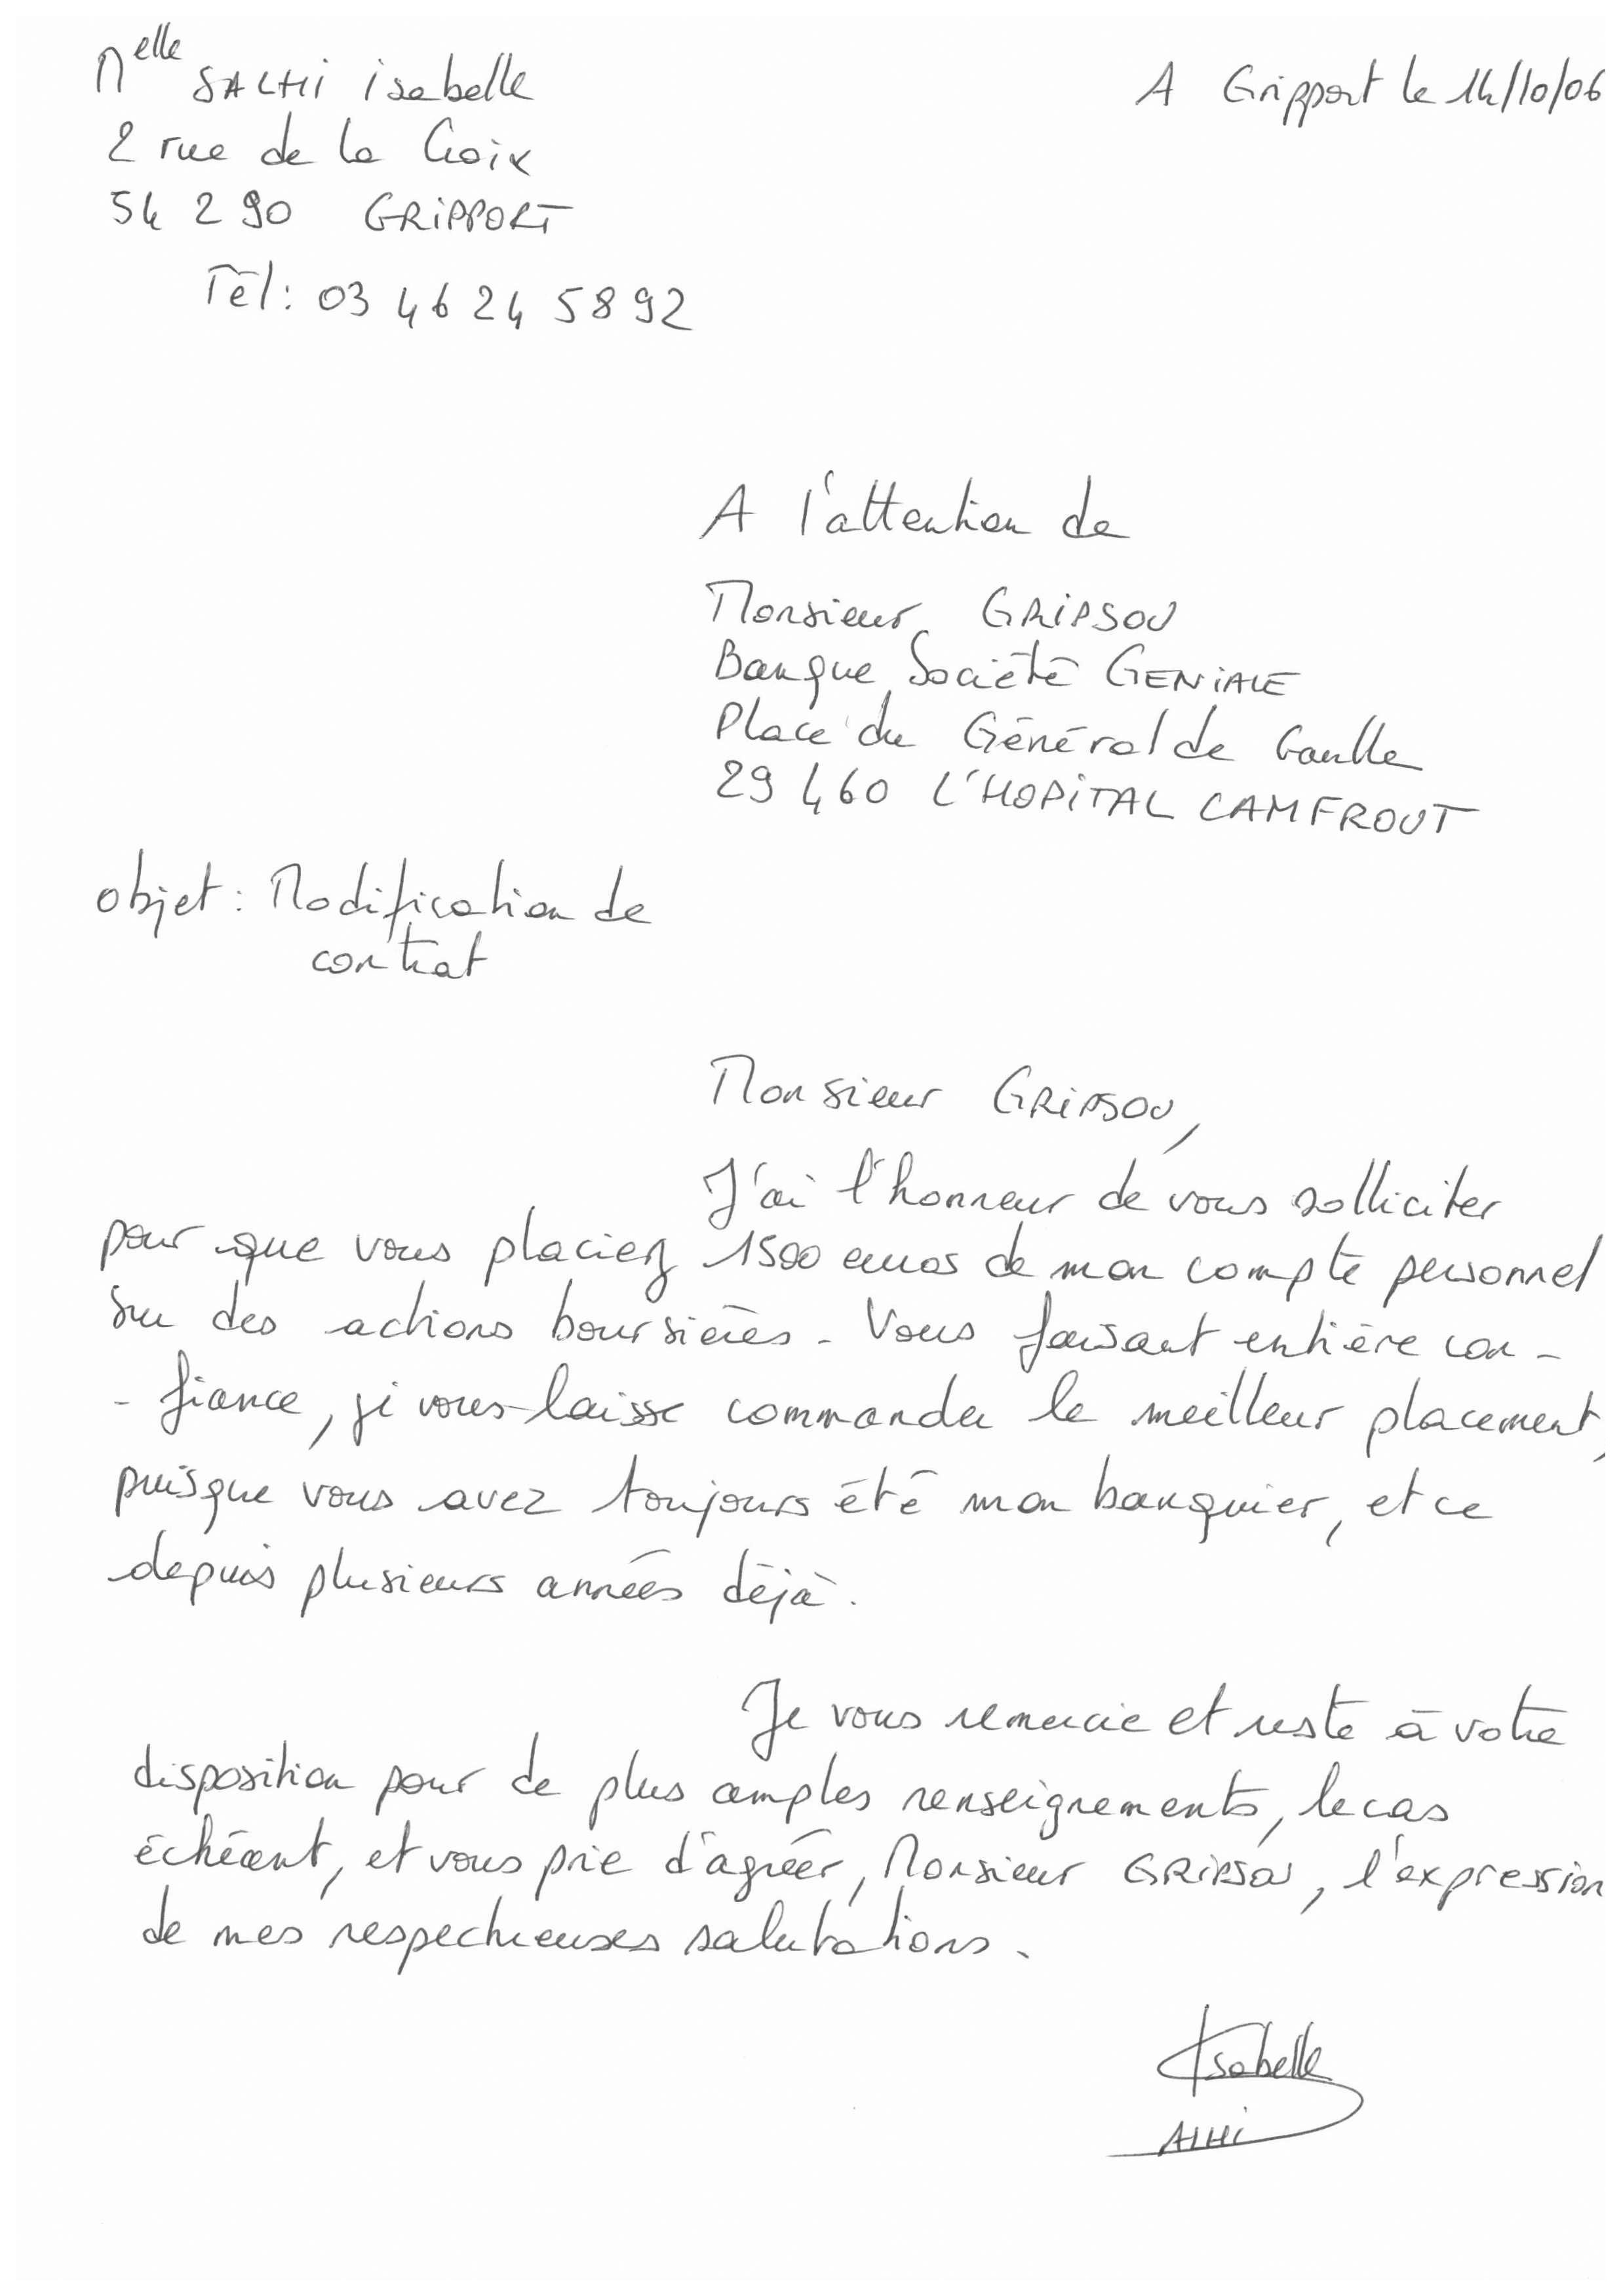 Melle SALHi isabelle
A Gripport le 14/10/06
2 rue de la Croix
54 290 GRiPPORT
Tél: 03 46 24 58 92
A l'attention de
Monsieur GRiPSOU
Banque Société GENiALE
Place du Général de Gaulle
29 460 L'HOPiTAL CAMFROUT
objet: Modification de
contrat
Monsieur GRiPSOU,
J'ai l'honneur de vous solliciter
pour que vous placiez 1500 euros de mon compte personnel
sur des actions boursières. Vous faisant entière con-
- fiance, je vous laisse commander le meilleur placement,
puisque vous avez toujours été mon banquier, et ce
depuis plusieurs années déjà.
Je vous remercie et reste à votre
disposition pour de plus amples renseignements, le cas
échéant, et vous prie d'agréer, Monsieur GRiPSOU, l'expression
de mes respectueuses salutations.
Isabelle
ALHi